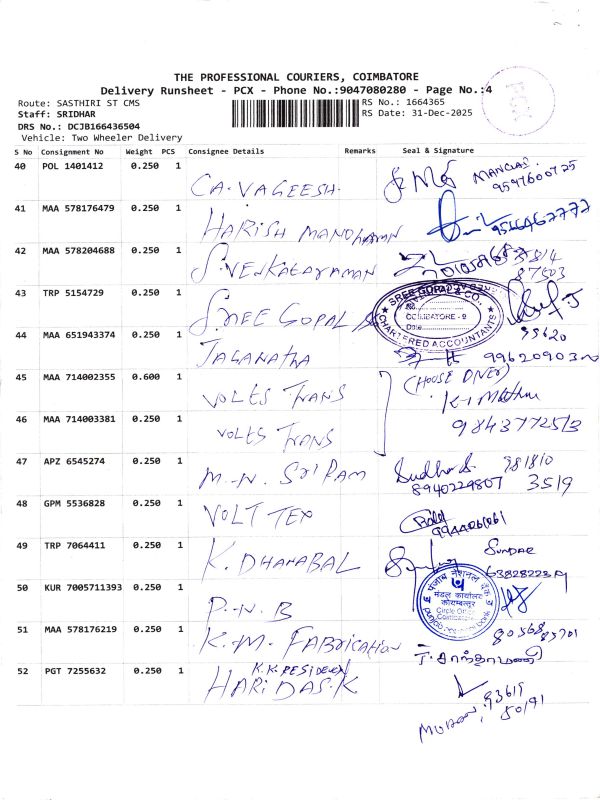 THE PROFESSIONAL COURIERS, COIMBATORE
Delivery Runsheet - PCX - Phone No.:9047080280 - Page No.:4
PCX
Route: SASTHIRI ST CMS
RS No.: 1664365
Staff: SRIDHAR
RS Date: 31-Dec-2025
DRS No.: DCJB166436504
Vehicle: Two Wheeler Delivery
S No Consignment No Weight PCS Consignee Details Remarks Seal & Signature
40 POL 1401412 0.250 1 CA. VAGEESH.
9597600725
41 MAA 578176479 0.250 1 HARISH MANOHARAN
42 MAA 578204688 0.250 1 S. VENKATARAMAN
87603
43 TRP 5154729 0.250 1 SREE GOPAL
SREE GOPAL & CO.,
COIMBATORE - 9
Date
CHARTERED ACCOUNTANTS
95620
44 MAA 651943374 0.250 1 JAGANATHA
45 MAA 714002355 0.600 1 VOLTS TRANS
(HOUSE
46 MAA 714003381 0.250 1 VOLTS TRANS
47 APZ 6545274 0.250 1 M.N. SRI RAM
Sudha S. 981810
8940229807 3519
48 GPM 5536828 0.250 1 VOLT TEX
49 TRP 7064411 0.250 1 K. DHANABAL
SUNDAR
50 KUR 7005711393 0.250 1 P.N.B
पंजाब नैशनल बैंक
मंडल कार्यालय
कोयम्बत्तूर
Circle Office
Coimbatore
punjab national bank
51 MAA 578176219 0.250 1 K.M. FABRICATION
80568
85701
த. சாந்தாமணி
52 PGT 7255632 0.250 1 K.K. RESIDENCY
HARI DAS.K
93619
50191